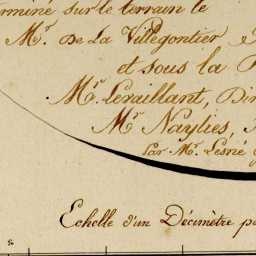 erminé sur le terrain le
Mr. De La Villegontier
et sous la
Mr. Leraillant, Dir
Mr Naylies,
Par Mr. Lesné
Echelle d'un Décimètre po